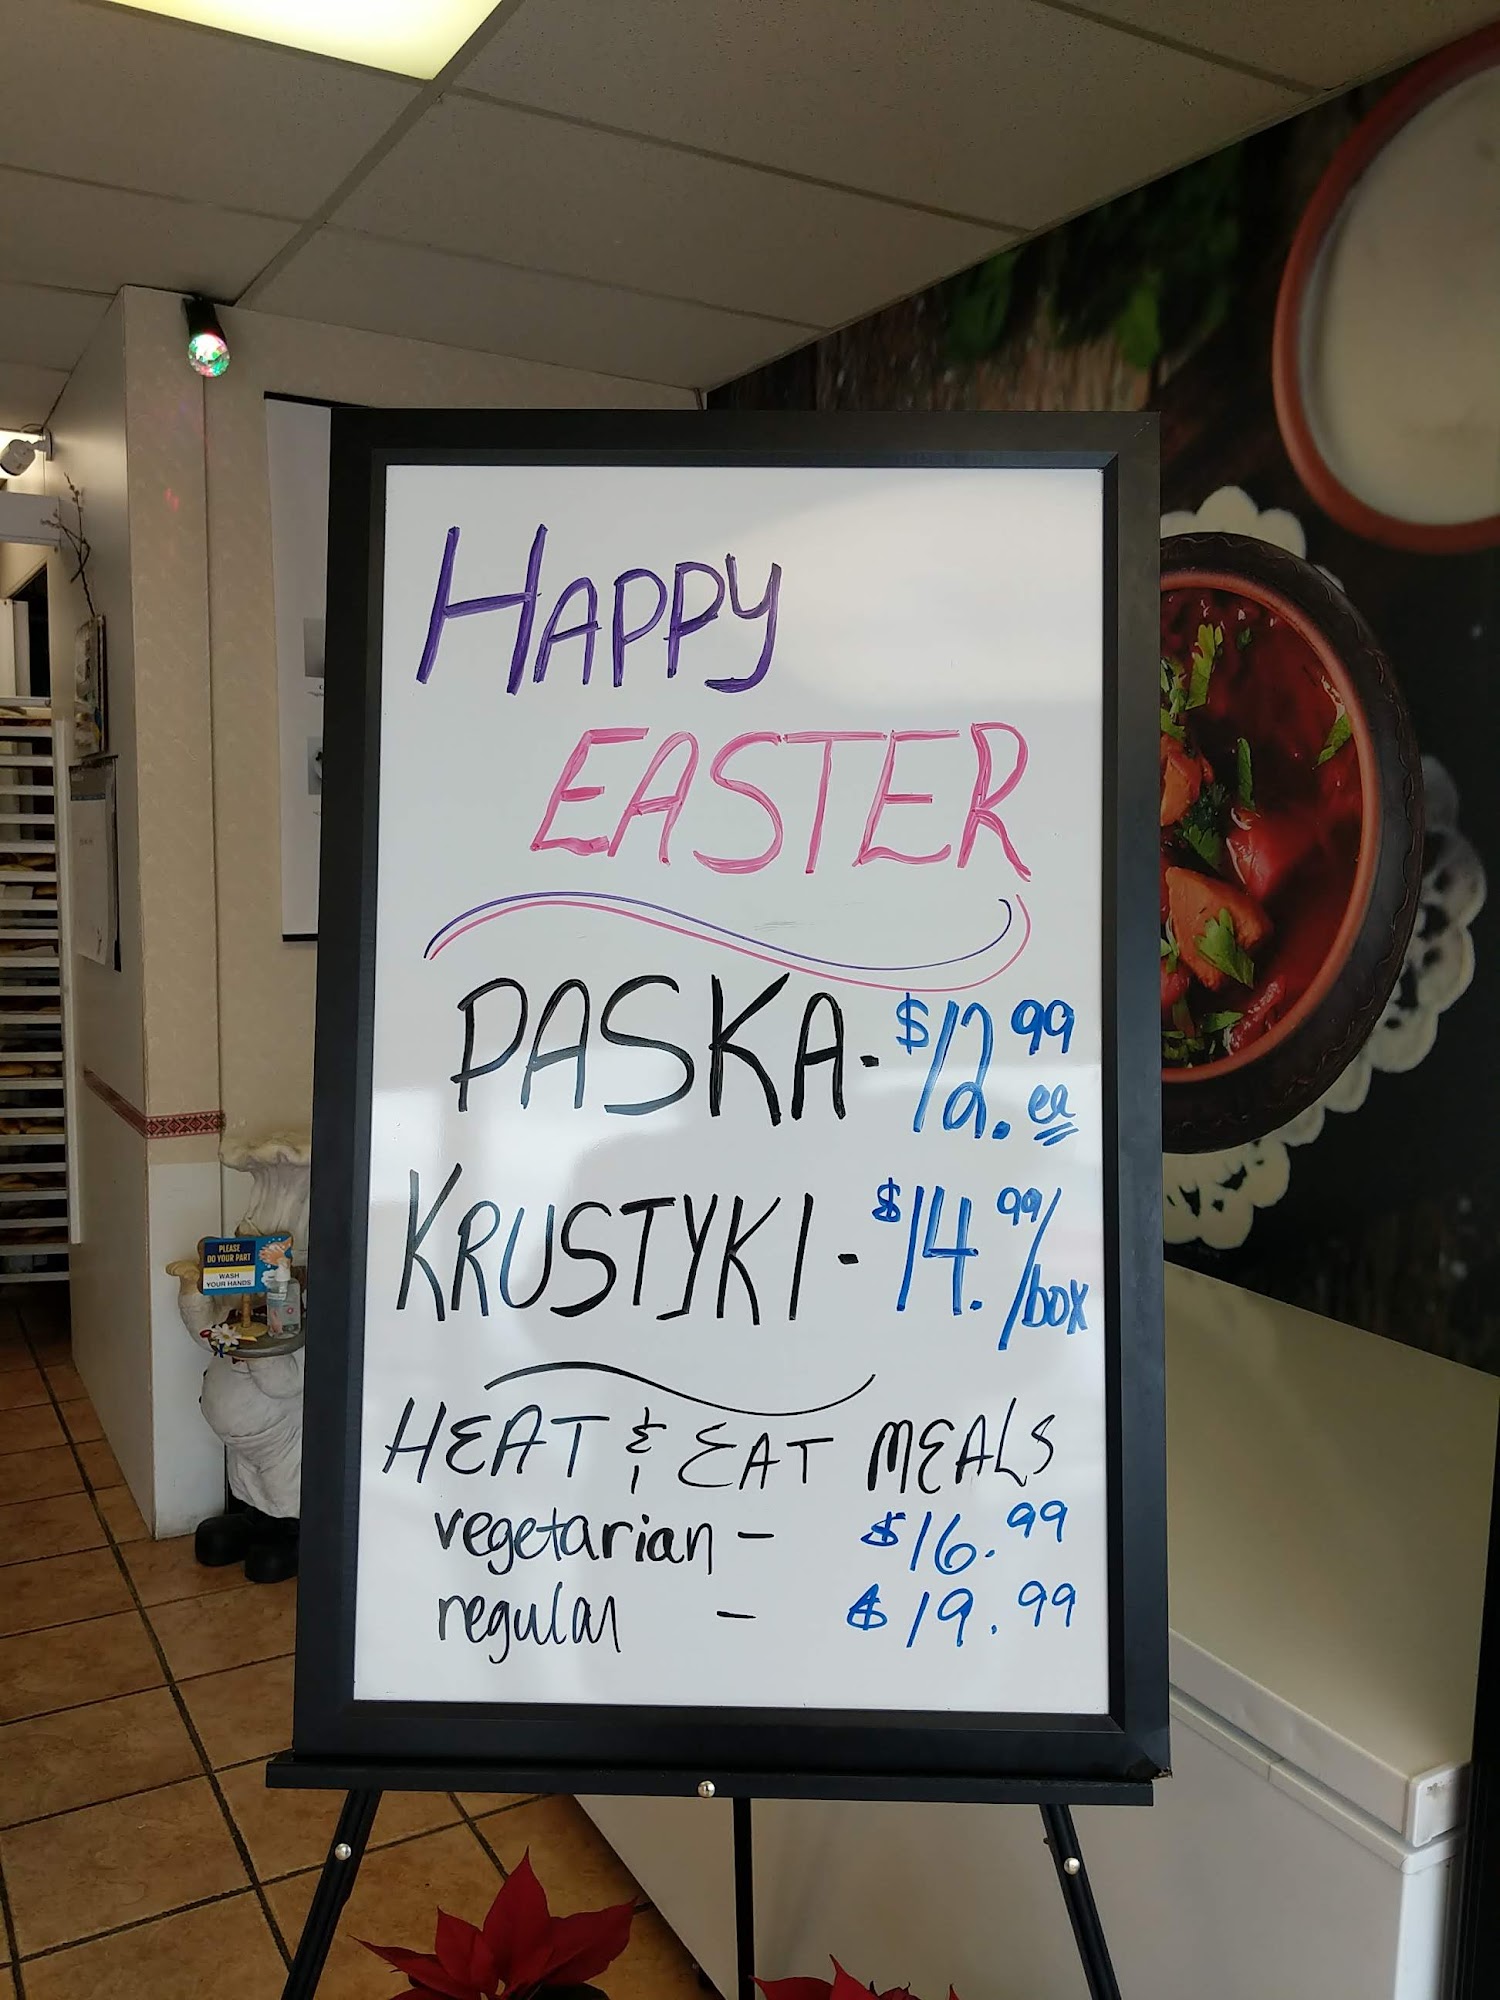 HAPPY
EASTER
PASKA - $12.99 ea
KRUSTYKI - $14.99/
/box
HEAT & EAT MEALS
vegetarian - $16.99
regular - $19.99
PLEASE
DO YOUR PART
WASH
YOUR HANDS